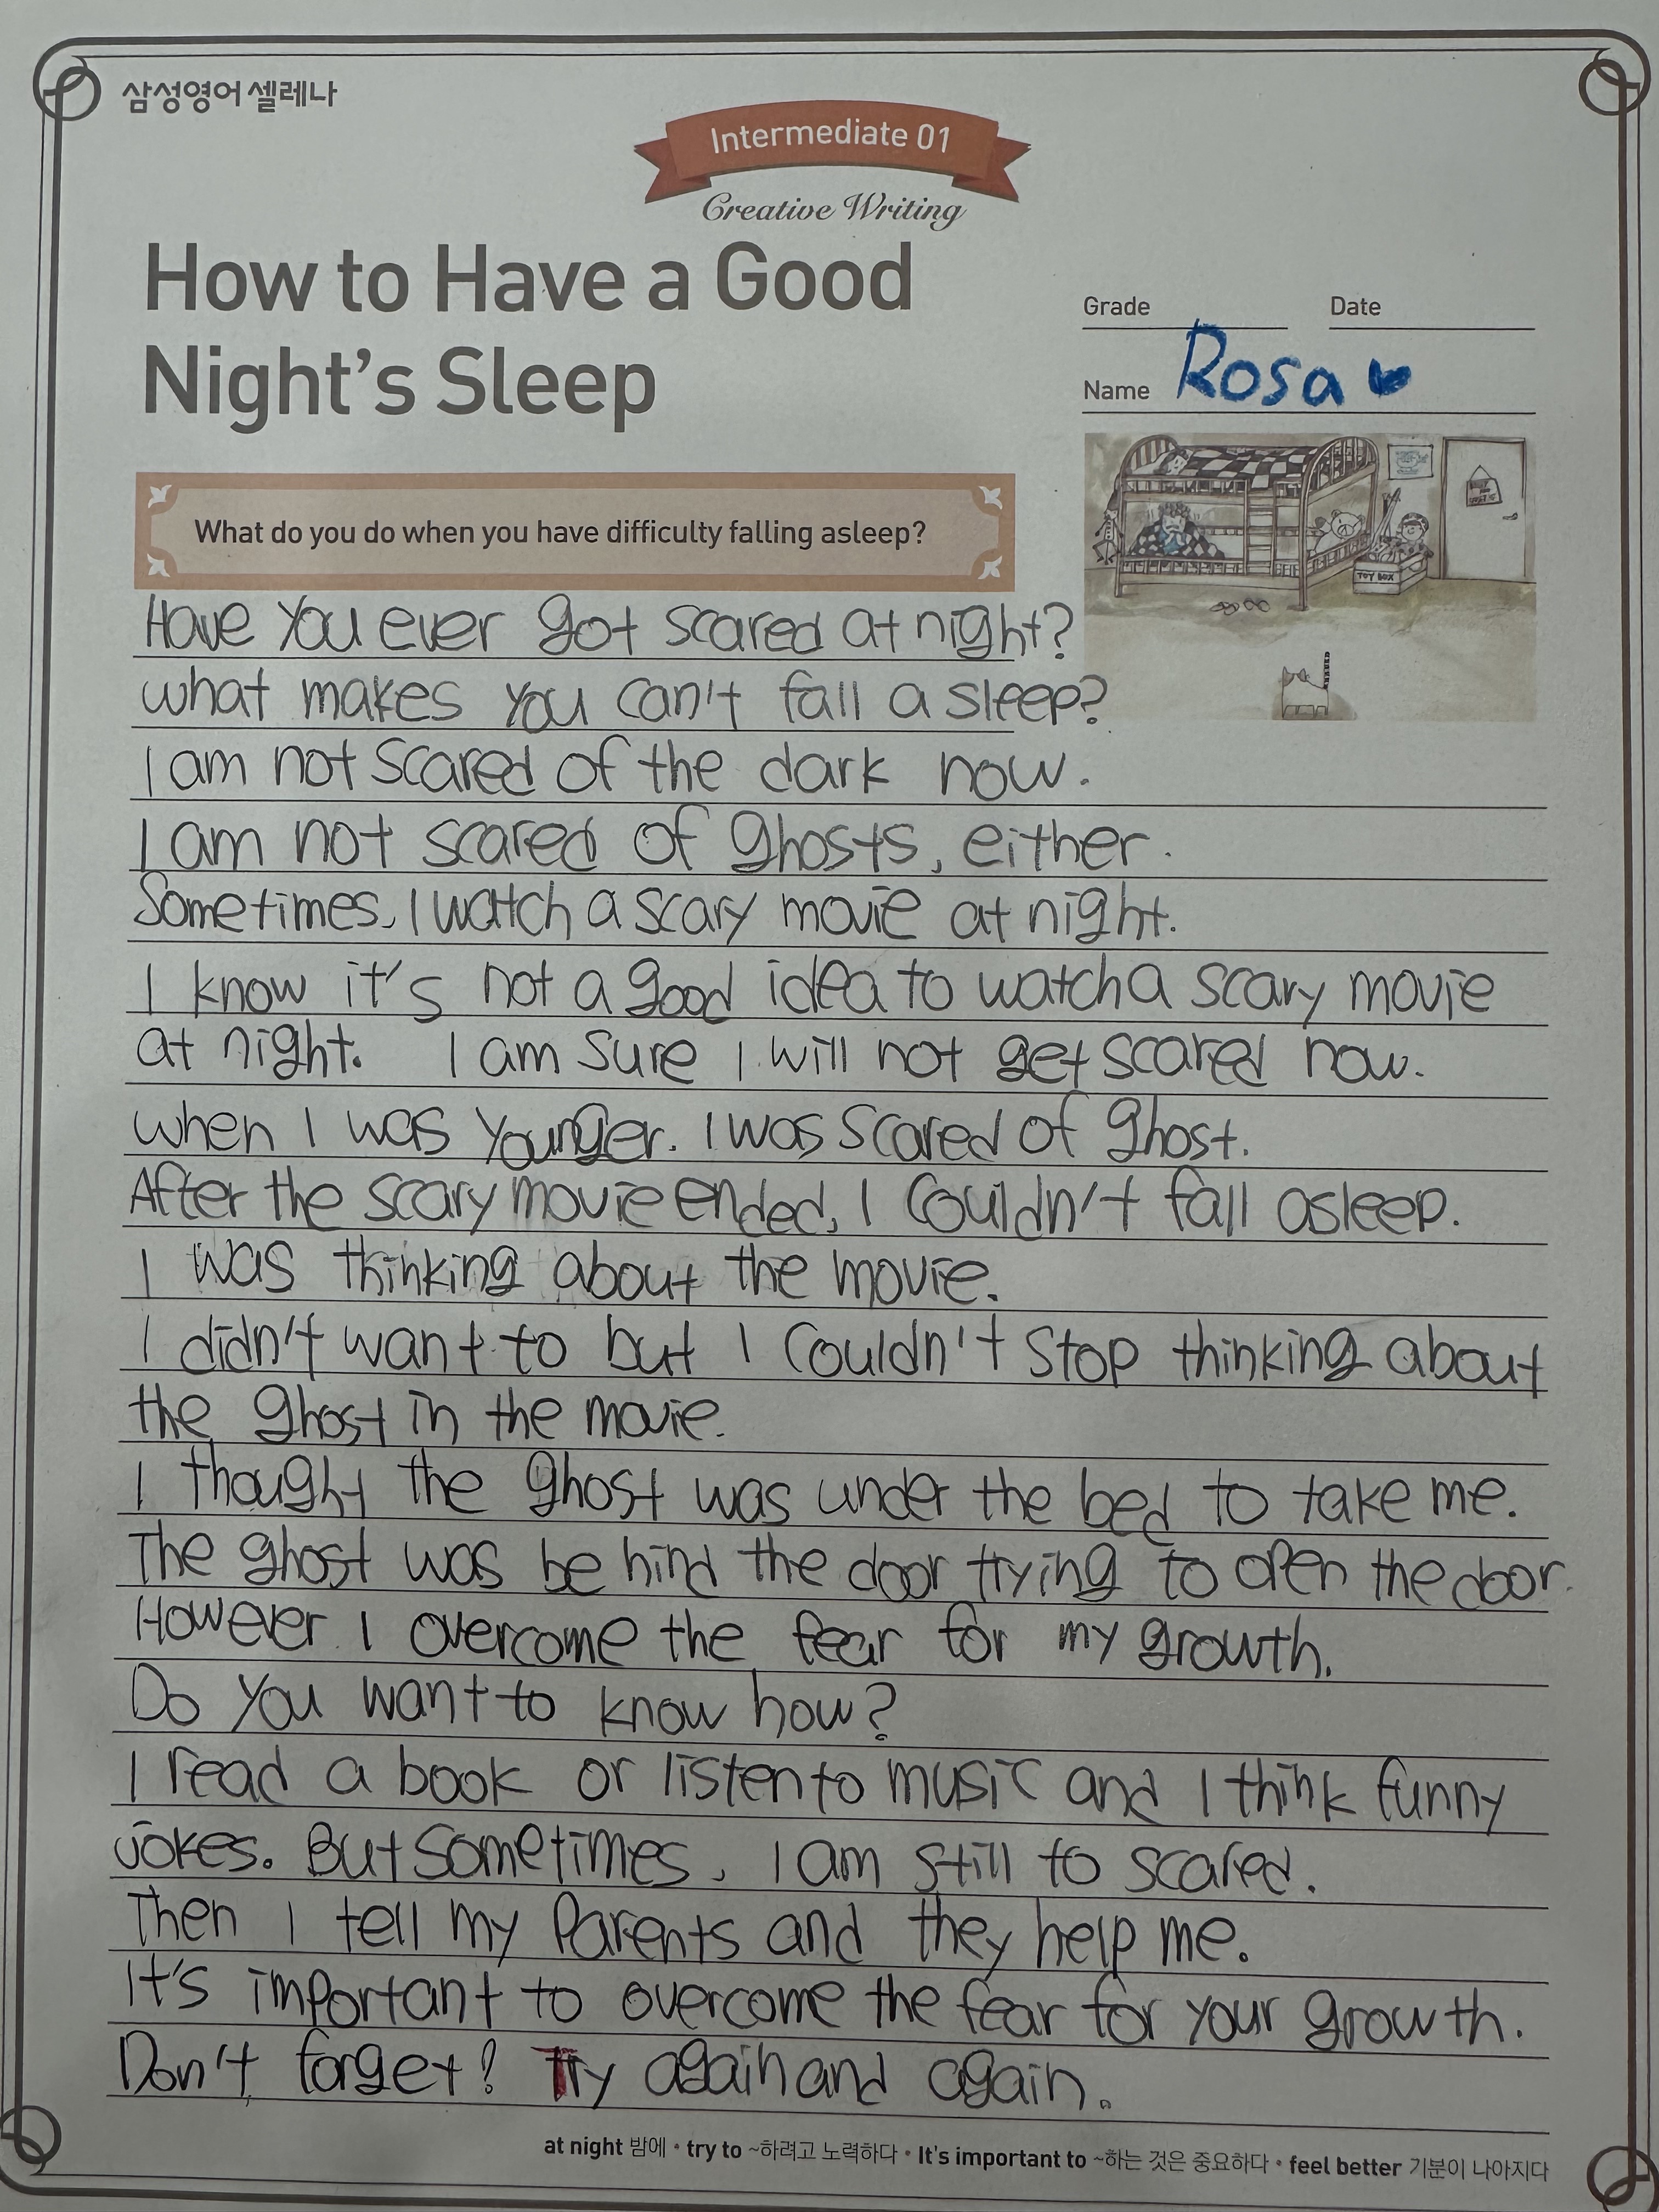 삼성영어 셀레나
Intermediate 01
Creative Writing
How to Have a Good
Night's Sleep
Grade
Date
Name Rosa
What do you do when you have difficulty falling asleep?
TOY BOX
Have you ever got scared at night?
what makes you can't fall a sleep?
I am not scared of the dark now.
I am not scared of ghosts, either.
Sometimes, I watch a scary movie at night.
I know it's not a good idea to watch a scary movie
at night. I am sure I will not get scared now.
when I was younger. I was scared of ghost.
After the scary movie ended, I couldn't fall asleep.
I was thinking about the movie.
I didn't want to but I couldn't stop thinking about
the ghost in the movie.
I thought the ghost was under the bed to take me.
The ghost was be hind the door trying to open the door.
However I overcome the fear for my growth.
Do you want to know how?
I read a book or listen to music and I think funny
jokes. But sometimes, I am still to scared.
Then I tell my parents and they help me.
It's important to overcome the fear for your growth.
Don't forget! Try again and again.
at night 밤에 • try to ~하려고 노력하다 • It's important to ~하는 것은 중요하다 • feel better 기분이 나아지다